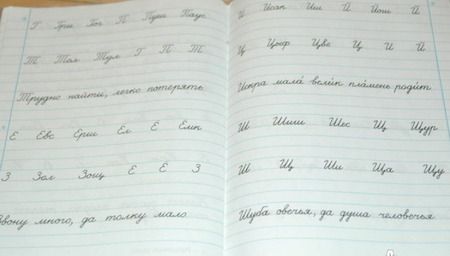 Г Гри Гог П Пуш Паус
Т Тол Тул Г П Т
Трудно найти, легко потерять
Е Евс Ерш Ел Е Емк
З Зол Зощ Е Е З
Звону много, да толку мало
И Исап Иш Й Йош Й
Ц Цоеф Цве Ц И Й
Искра мала́ вели́к пла́мень роди́т
Ш Шиш Шес Щ Щур
Ш Щ Ши Ща Щу
Шуба овечья, да душа человечья